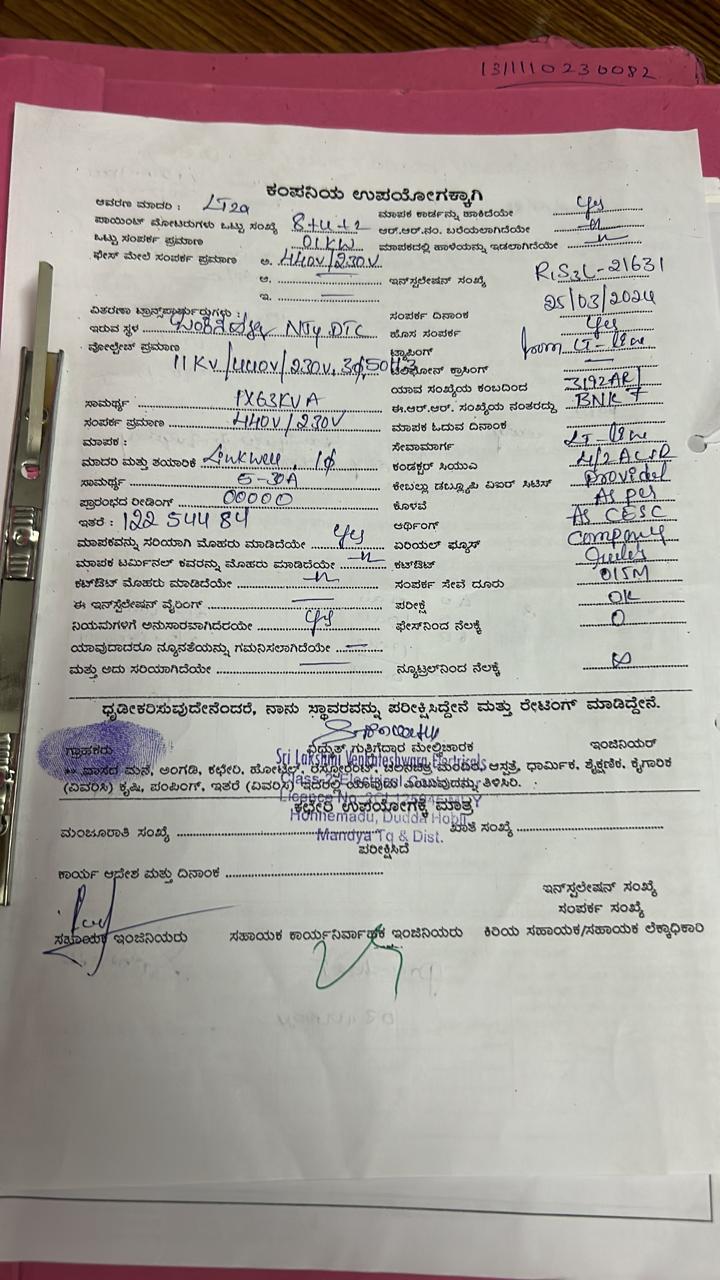 1311110230082
ಕಂಪನಿಯ ಉಪಯೋಗಕ್ಕಾಗಿ
ಆವರಣ ಮಾದರಿ : LT2a
ಮಾಪಕ ಕಾರ್ಡನ್ನು ಹಾಕಿದೆಯೇ Yes
ಪಾಯಿಂಟ್ ಮೋಟರುಗಳು ಒಟ್ಟು ಸಂಖ್ಯೆ 8+4+2
ಆರ್.ಆರ್.ನಂ. ಬರೆಯಲಾಗಿದೆಯೇ -"-
ಒಟ್ಟು ಸಂಪರ್ಕ ಪ್ರಮಾಣ 01KW
ಮಾಪಕದಲ್ಲಿ ಹಾಳೆಯನ್ನು ಇಡಲಾಗಿದೆಯೇ -"-
ಫೇಸ್ ಮೇಲೆ ಸಂಪರ್ಕ ಪ್ರಮಾಣ ಅ. 440V/230V
ಆ.
ಇನ್‌ಸ್ಟಲೇಷನ್ ಸಂಖ್ಯೆ RiS3L-21631
ಇ.
ಸಂಪರ್ಕ ದಿನಾಂಕ 25/03/2024
ವಿತರಣಾ ಟ್ರಾನ್ಸ್‌ಫಾರ್ಮರುಗಳು :
ಇರುವ ಸ್ಥಳ NTy DTC
ಹೊಸ ಸಂಪರ್ಕ Yes
ವೋಲ್ಟೇಜ್ ಪ್ರಮಾಣ 11KV/440V/230V, 3ϕ,50HZ
ಟ್ಯಾಪಿಂಗ್ from LT-line
ಟೆಲಿಫೋನ್ ಕ್ರಾಸಿಂಗ್
ಯಾವ ಸಂಖ್ಯೆಯ ಕಂಬದಿಂದ 3192AR/
ಸಾಮರ್ಥ್ಯ 1X63KVA
ಈ.ಆರ್.ಆರ್. ಸಂಖ್ಯೆಯ ನಂತರದ್ದು BNK 7
ಸಂಪರ್ಕ ಪ್ರಮಾಣ 440V/230V
ಮಾಪಕ ಓದುವ ದಿನಾಂಕ
ಮಾಪಕ :
ಸೇವಾಮಾರ್ಗ LT-line
ಮಾದರಿ ಮತ್ತು ತಯಾರಿಕೆ Linkwell, 1ϕ
ಕಂಡಕ್ಟರ್ ಸಿಯುಎ 4/2 ACSR
ಸಾಮರ್ಥ್ಯ 5-30A
ಕೇಬಲ್ಲು ಡಬ್ಲ್ಯೂಪಿ ಏಐರ್ ಸಿಟಿಸ್ Provided
ಪ್ರಾರಂಭದ ರೀಡಿಂಗ್ 00000
ಕೊಳವೆ As per
ಇತರೆ : 12254484
ಆರ್ಥಿಂಗ್ As CESC
ಮಾಪಕವನ್ನು ಸರಿಯಾಗಿ ಮೊಹರು ಮಾಡಿದೆಯೇ Yes
ಏರಿಯಲ್ ಫ್ಯೂಸ್ Company
ಮಾಪಕ ಟರ್ಮಿನಲ್ ಕವರನ್ನು ಮೊಹರು ಮಾಡಿದೆಯೇ -"-
ಕಟ್‌ಔಟ್ rules
ಕಟ್‌ಔಟ್ ಮೊಹರು ಮಾಡಿದೆಯೇ -"-
ಸಂಪರ್ಕ ಸೇವೆ ದೂರು 015M
ಈ ಇನ್‌ಸ್ಟಲೇಷನ್ ವೈರಿಂಗ್
ಪರೀಕ್ಷೆ OK
ನಿಯಮಗಳಿಗೆ ಅನುಸಾರವಾಗಿದೆರಯೇ Yes
ಫೇಸ್‌ನಿಂದ ನೆಲಕ್ಕೆ 0
ಯಾವುದಾದರೂ ನ್ಯೂನತೆಯನ್ನು ಗಮನಿಸಲಾಗಿದೆಯೇ
ಮತ್ತು ಅದು ಸರಿಯಾಗಿದೆಯೇ
ನ್ಯೂಟ್ರಲ್‌ನಿಂದ ನೆಲಕ್ಕೆ
ಧೃಡೀಕರಿಸುವುದೇನೆಂದರೆ, ನಾನು ಸ್ಥಾವರವನ್ನು ಪರೀಕ್ಷಿಸಿದ್ದೇನೆ ಮತ್ತು ರೇಟಿಂಗ್ ಮಾಡಿದ್ದೇನೆ.
ಗ್ರಾಹಕರು ವಿದ್ಯುತ್ ಗುತ್ತಿಗೆದಾರ ಮೇಲ್ವಿಚಾರಕ ಇಂಜಿನಿಯರ್
Sri Lakshmi Venkateshwara Electricals
** ವಾಸದ ಮನೆ, ಅಂಗಡಿ, ಕಛೇರಿ, ಹೋಟೆಲ್, ರೆಸ್ಟೋರೆಂಟ್, ಚಲನಚಿತ್ರ ಮಂದಿರ, ಆಸ್ಪತ್ರೆ, ಧಾರ್ಮಿಕ, ಶೈಕ್ಷಣಿಕ, ಕೈಗಾರಿಕ
(ವಿವರಿಸಿ) ಕೃಷಿ, ಪಂಪಿಂಗ್, ಇತರೆ (ವಿವರಿಸಿ) ಇದರಲ್ಲಿ ಯಾವುದು ಎಂಬುವುದನ್ನು ತಿಳಿಸಿರಿ.
ಕಛೇರಿ ಉಪಯೋಗಕ್ಕೆ ಮಾತ್ರ
Honnemadu, Dudda Hobli
ಮಂಜೂರಾತಿ ಸಂಖ್ಯೆ ಖಾತೆ ಸಂಖ್ಯೆ
Mandya Tq & Dist.
ಪರೀಕ್ಷಿಸಿದೆ
ಕಾರ್ಯ ಆದೇಶ ಮತ್ತು ದಿನಾಂಕ
ಇನ್‌ಸ್ಟಲೇಷನ್ ಸಂಖ್ಯೆ
ಸಂಪರ್ಕ ಸಂಖ್ಯೆ
ಸಹಾಯಕ ಇಂಜಿನಿಯರು ಸಹಾಯಕ ಕಾರ್ಯನಿರ್ವಾಹಕ ಇಂಜಿನಿಯರು ಕಿರಿಯ ಸಹಾಯಕ/ಸಹಾಯಕ ಲೆಕ್ಕಾಧಿಕಾರಿ